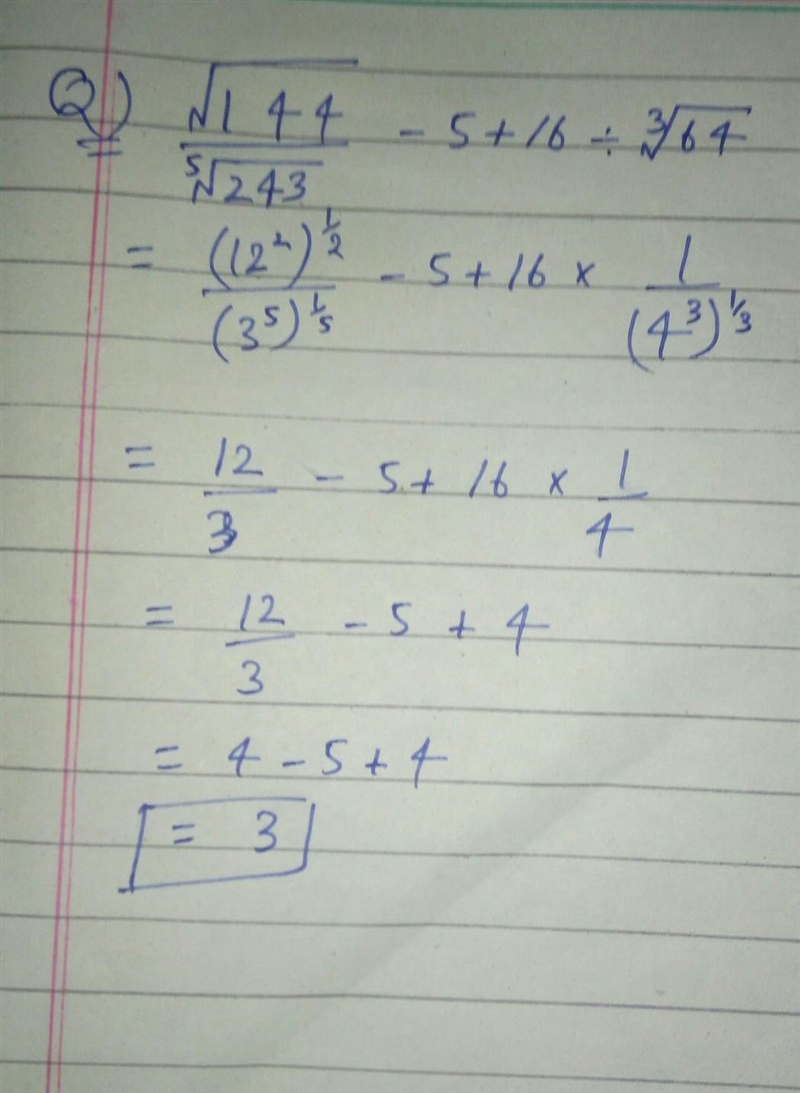 Q) √144 / ⁵√243 - 5 + 16 ÷ ³√64
= (12²)^(1/2) / (3⁵)^(1/5) - 5 + 16 × 1 / (4³)^(1/3)
= 12/3 - 5 + 16 × 1/4
= 12/3 - 5 + 4
= 4 - 5 + 4
= 3